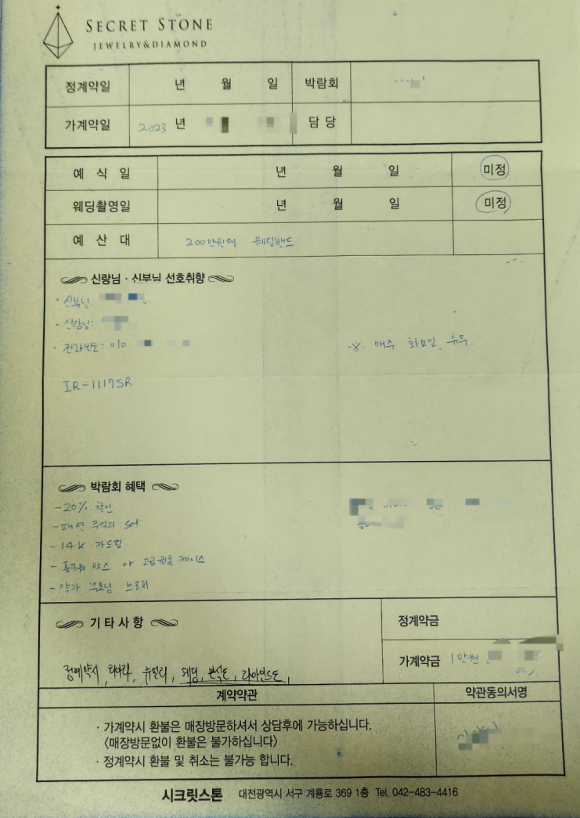 SECRET STONE
JEWELRY&DIAMOND
정계약일 년 월 일 박람회
가계약일 2023 년 담 당
예 식 일 년 월 일 미정
웨딩촬영일 년 월 일 미정
예 산 대 200만원대 웨딩밴드
신랑님 · 신부님 선호취향
· 신부님:
· 신랑님:
· 전화번호: 010
※ 매주 화요일 휴무
IR-1117SR
박람회 혜택
- 20% 할인
- 패션 주얼리 set
- 14k 가드링
- 플라워 박스 or 고급원목 케이스
- 양가 부모님 브로치
기 타 사 항
정계약금
정계약시, 티아라, 귀걸이,
가계약금 1만원
계약약관 약관동의서명
· 가계약시 환불은 매장방문하셔서 상담후에 가능하십니다.
〈매장방문없이 환불은 불가하십니다〉
· 정계약시 환불 및 취소는 불가능 합니다.
시크릿스톤 대전광역시 서구 계룡로 369 1층 Tel. 042-483-4416